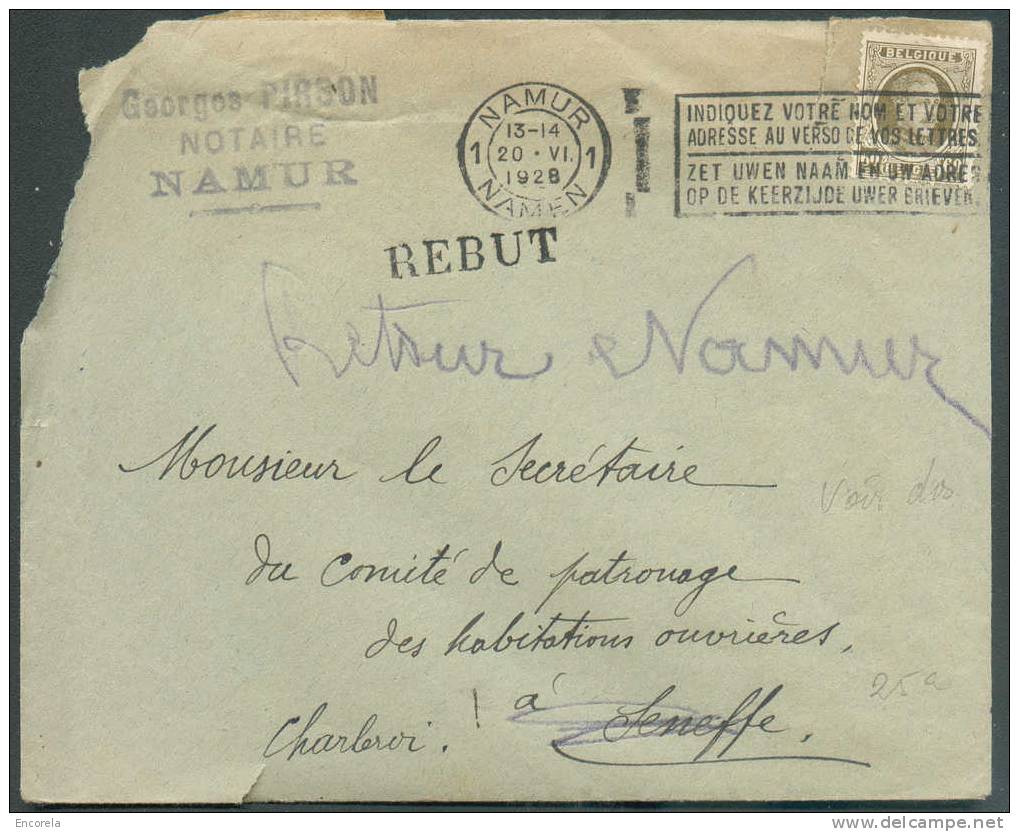 Georges PIRSON
NOTAIRE
NAMUR
NAMUR
13-14
1 20 · VI. 1
1928
NAMEN
BELGIQUE
INDIQUEZ VOTRE NOM ET VOTRE
ADRESSE AU VERSO DE VOS LETTRES
ZET UWEN NAAM EN UW ADRES
OP DE KEERZIJDE UWER BRIEVEN.
REBUT
Retour Namur
Monsieur le Secrétaire
Voir dos
du Comité de patronage
des habitations ouvrières,
25a
à Seneffe,
Charleroi. !
Encorela
www.delcampe.net